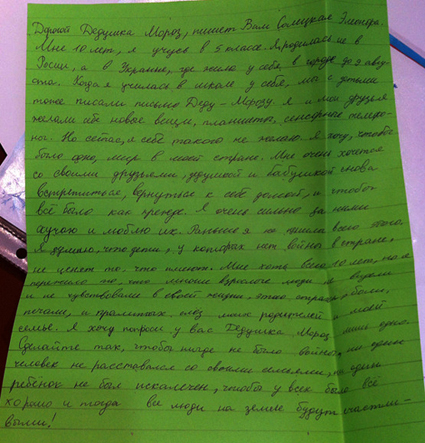 Дорогой Дедушка Мороз, пишет Вам
Мне 10 лет, я учусь в 5 классе. Я родилась не в
России, а в Украине, где жила у себя, в городе до 9 авгу-
ста. Когда я училась в школе у себя, мы с детьми
тоже писали письма Деду-Морозу. Я и мои друзья
желали себе новые вещи, планшеты, сенсорные телефо-
на. Но сейчас, я себе такого не желаю. Я хочу, чтобы
было одно, мир в моей стране. Мне очень хочется
со своими друзьями, дедушкой и бабушкой снова
встретиться, вернуться к себе домой, и чтобы
всё было как прежде. Я очень сильно за ними
скучаю и люблю их. Раньше я не ценила всего этого.
Я думаю, что дети, у которых нет войны в стране,
не ценят то, что имеют. Мне хоть всего 10 лет, но я
пережила то, что многие взрослые люди не видели
и не чувствовали в своей жизни, это страха, боли,
печали, и пролитых слез моих родителей и моей
семьи. Я хочу попросить у вас Дедушка Мороз лишь одно.
Сделайте так, чтобы нигде не было войны, ни один
человек не расставался со своими семьями, ни один
ребёнок не был искалечен, чтобы у всех было всё
хорошо и тогда все люди на земле будут счастли-
выми!